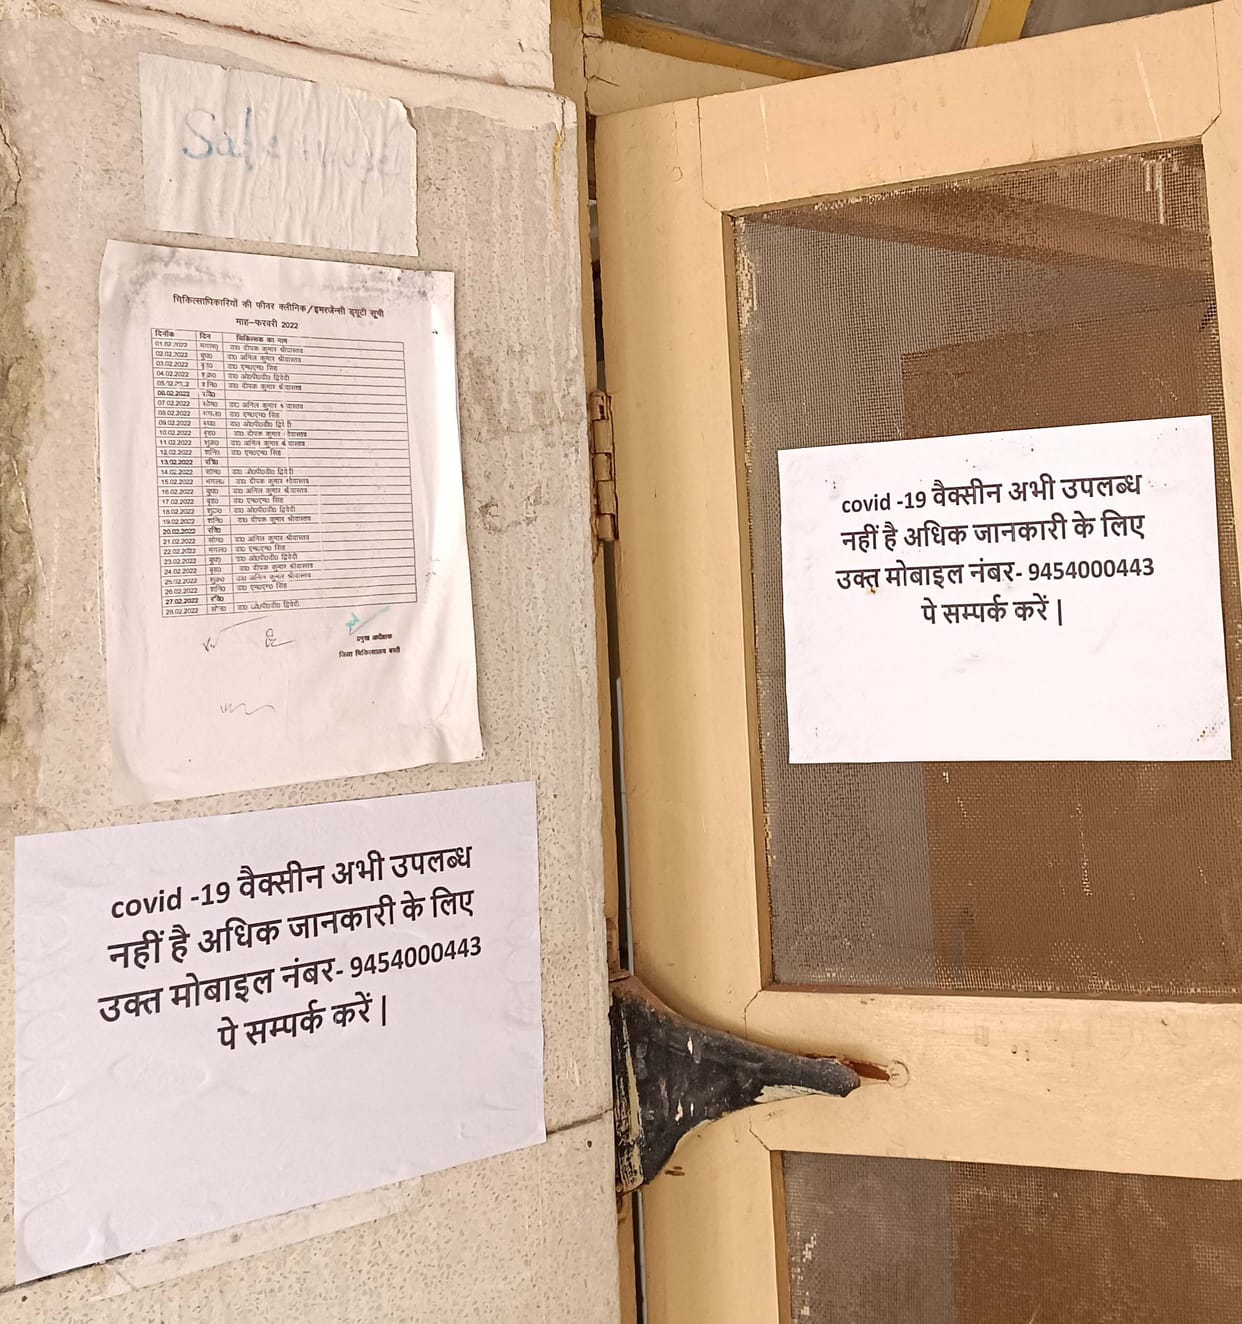 Safe
चिकित्साधिकारियों की फीवर क्लीनिक/इमरजेंसी ड्यूटी सूची
माह–फरवरी 2022
दिनाँक दिन चिकित्सक का नाम
01.02.2022 मंगल0 डा0 दीपक कुमार श्रीवास्तव
02.02.2022 बुध0 डा0 अनिल कुमार श्रीवास्तव
03.02.2022 बृह0 डा0 एम0एम0 सिंह
04.02.2022 शुक्र0 डा0 ओ0पी0डी0 द्विवेदी
शनि0 डा0 दीपक कुमार श्रीवास्तव
06.02.2022 रवि0
07.02.2022 सोम0 डा0 अनिल कुमार श्रीवास्तव
08.02.2022 मंगल0 डा0 एम0एम0 सिंह
09.02.2022 बुध0 डा0 ओ0पी0डी0 द्विवेदी
10.02.2022 बृह0 डा0 दीपक कुमार श्रीवास्तव
11.02.2022 शुक्र0 डा0 अनिल कुमार श्रीवास्तव
12.02.2022 शनि0 डा0 एम0एम0 सिंह
13.02.2022 रवि0
14.02.2022 सोम0 डा0 ओ0पी0डी0 द्विवेदी
15.02.2022 मंगल0 डा0 दीपक कुमार श्रीवास्तव
16.02.2022 बुध0 डा0 अनिल कुमार श्रीवास्तव
17.02.2022 बृह0 डा0 एम0एम0 सिंह
18.02.2022 शुक्र0 डा0 ओ0पी0डी0 द्विवेदी
19.02.2022 शनि0 डा0 दीपक कुमार श्रीवास्तव
20.02.2022 रवि0
21.02.2022 सोम0 डा0 अनिल कुमार श्रीवास्तव
22.02.2022 मंगल0 डा0 एम0एम0 सिंह
23.02.2022 बुध0 डा0 ओ0पी0डी0 द्विवेदी
24.02.2022 बृह0 डा0 दीपक कुमार श्रीवास्तव
25.02.2022 शुक्र0 डा0 अनिल कुमार श्रीवास्तव
26.02.2022 शनि0 डा0 एम0एम0 सिंह
27.02.2022 रवि0
28.02.2022 सोम0 डा0 ओ0पी0डी0 द्विवेदी
प्रमुख अधीक्षक
जिला चिकित्सालय बस्ती
covid -19 वैक्सीन अभी उपलब्ध
नहीं है अधिक जानकारी के लिए
उक्त मोबाइल नंबर- 9454000443
पे सम्पर्क करें |
covid -19 वैक्सीन अभी उपलब्ध
नहीं है अधिक जानकारी के लिए
उक्त मोबाइल नंबर- 9454000443
पे सम्पर्क करें |